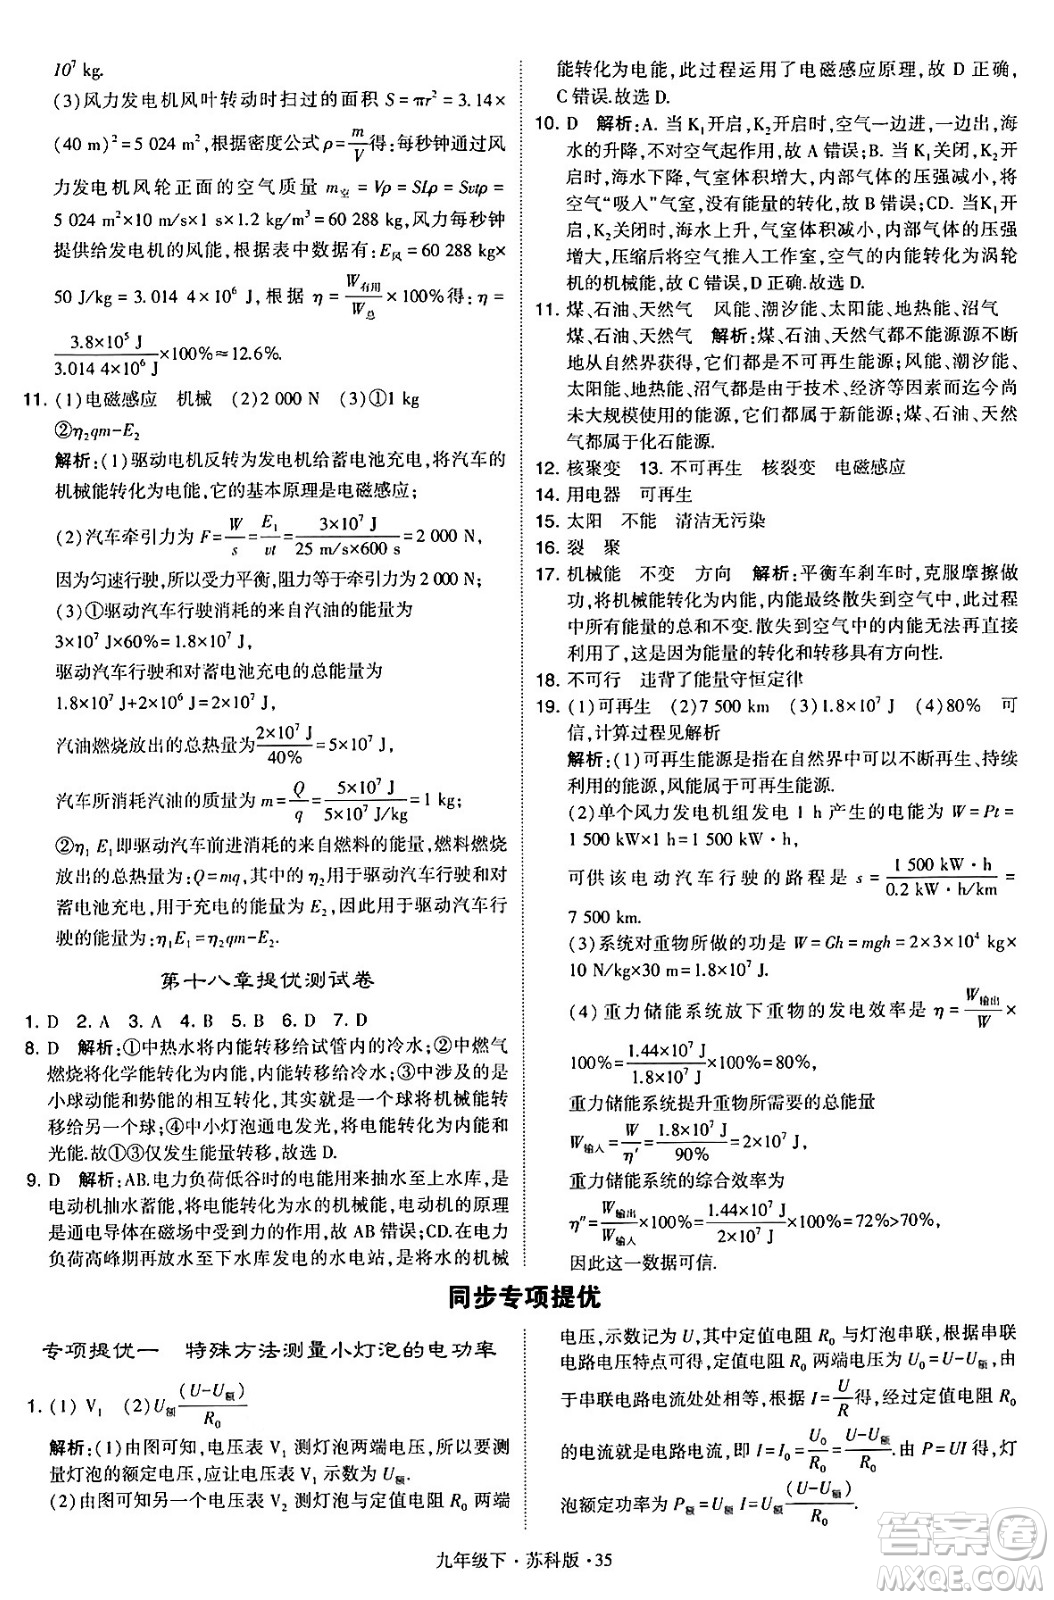 10⁷ kg.
(3)风力发电机风叶转动时扫过的面积 S=πr²=3.14×
(40 m)²=5 024 m²,根据密度公式 ρ=m/V得:每秒钟从风
力发电机风轮正面的空气质量 m空=Vρ=SLρ=Svtρ=
5 024 m²×10 m/s×1 s×1.2 kg/m³=60 288 kg,风力每秒钟
提供给发电机的风能,根据表中数据有:E风=60 288 kg×
50 J/kg=3.014 4×10⁶ J,根据 η=W有用/W总×100%得:η=
3.8×10⁵ J/3.014 4×10⁶ J×100%≈12.6%.
11. (1)电磁感应 机械 (2)2 000 N (3)①1 kg
②η₂qm-E₂
解析:(1)驱动电机反转为发电机给蓄电池充电,将汽车的
机械能转化为电能,它的基本原理是电磁感应;
(2)汽车牵引力为 F=W/s=E₁/vt=3×10⁷ J/25 m/s×600 s=2 000 N,
因为匀速行驶,所以受力平衡,阻力等于牵引力为 2 000 N;
(3)①驱动汽车行驶消耗的汽油的能量为
3×10⁷ J×60%=1.8×10⁷ J,
驱动汽车行驶和对蓄电池充电的总能量为
1.8×10⁷ J+2×10⁶ J=2×10⁷ J,
汽油燃烧放出的总热量为2×10⁷ J/40%=5×10⁷ J,
汽车所消耗汽油的质量 m=Q/q=5×10⁷ J/5×10⁷ J/kg=1 kg;
②η₁ E₁即驱动汽车前进消耗的来自燃料的能量,燃料燃烧
放出的总热量为:Q=mq,其中η₂用于驱动汽车行驶和对
蓄电池充电,用于充电的能量为 E₂,所以用于驱动汽车行
驶的能量为:η₁E₁=η₂qm-E₂.
第十八章提优测试卷
1. D 2. A 3. A 4. B 5. B 6. D 7. D
8. D 解析:①中热水将内能转移给试管内的冷水;②中燃气
燃烧将化学能转化为内能,内能转移给冷水;③中涉及的是
小球动能和势能的相互转化,其实就是一个球将机械能转
移给另一个球;④中小灯泡通电发光,将电能转化为内能和
光能.故①③仅发生能量转移,故选 D.
9. D 解析:AB.电力负荷低谷时的电能用来抽水到上水库,是
电动机抽水蓄能,将电能转化为水的机械能,电动机的原理
是通电导体在磁场中受到力的作用,故 AB 错误;CD.在电力
负荷高峰期再放水至下水库发电的水电站,是将水的机械
能转化为电能,此过程运用了电磁感应原理,故 D 正确,
C 错误.故选 D.
10. D 解析:A. 当 K₁开启,K₂开启时,空气一边进,一边出,海
水的升降,不对空气起作用,故 A 错误;B. 当 K₁关闭,K₂
开启时,海水下降,气室体积增大,内部气体的压强减小,
空气“吸入”气室,没有能量的转化,故 B 错误;CD. 当 K₁开
启,K₂关闭时,海水上升,气室体积减小,内部气体的压强
增大,压缩后将空气推入工作室,空气的内能转化为涡轮
机的机械能,故 C 错误,D 正确.故选 D.
11. 煤、石油、天然气 风能、潮汐能、太阳能、地热能、沼气
煤、石油、天然气 解析:煤、石油、天然气都不能源源不断
地从自然界获得,它们是不可再生能源;风能、潮汐能、
太阳能、地热能、沼气目前是由于技术、经济等因素而尚
未大规模使用的能源,它们都属于新能源;煤、石油、天然
气都属于化石能源.
12. 核聚变 13. 不可再生 核裂变 电磁感应
14. 用电器 可再生
15. 太阳 不能 清洁无污染
16. 裂 聚
17. 机械能 不变 方向 解析:平衡车刹车时,克服摩擦做
功,将机械能转化为内能,内能最终散失到空气中,此过程
中所有能量的总和不变.散失到空气中的内能无法再直接
利用了,这是因为能量的转化和转移具有方向性.
18. 不可行 违背了能量守恒定律
19. (1)可再生 (2)7 500 km (3)1.8×10⁷ J (4)80% 可
信,计算过程见解析
解析:(1)可再生能源是指在自然界中可以不断再生、持续
利用的能源,风能属于可再生能源.
(2)单个风力发电机组发电 1 h 产生的电能为 W=Pt=
1 500 kW×1 h=1 500 kW·h,
可供该电动汽车行驶的路程是 s=1 500 kW·h/0.2 kW·h/km=
7 500 km.
(3)系统对重物所做的功是 W=Gh=mgh=2×3×10⁴×
10 N/kg×30 m=1.8×10⁷ J.
(4)重力储能系统放下重物的发电效率是 η=W输出/W×
100%=1.44×10⁷ J/1.8×10⁷ J×100%=80%,
重力储能系统提升重物所需要的总能量
W输入=W/η′=1.8×10⁷ J/90%=2×10⁷ J,
重力储能系统的综合效率为
η″=W输出/W输入×100%=1.44×10⁷ J/2×10⁷ J×100%=72%>70%,
因此这一数据可信.
同步专项提优
专项提优一 特殊方法测量小灯泡的电功率
1. (1) V₁ (2)U额(U-U额)/R₀
解析:(1)由图可知,电压表 V₁ 测灯泡两端电压,所以要测
量灯泡的额定电压,应让电压表 V₁ 示数为 U额.
(2)由图可知另一个电压表 V₂ 测灯泡与定值电阻 R₀ 两端
电压,示数记为 U,其中定值电阻 R₀ 与灯泡串联,根据串联
电路电压特点可得,定值电阻 R₀ 两端电压为 U₀=U-U额,由
于串联电路电流处处相等,根据 I=U/R得,经过定值电阻 R₀
的电流就是电路电流,即 I=I₀=U₀/R₀=U-U额/R₀.由 P=UI得,灯
泡额定功率为 P额=U额 I=U额(U-U额)/R₀.
九年级下·苏科版·35
答案圈
MXQE.COM